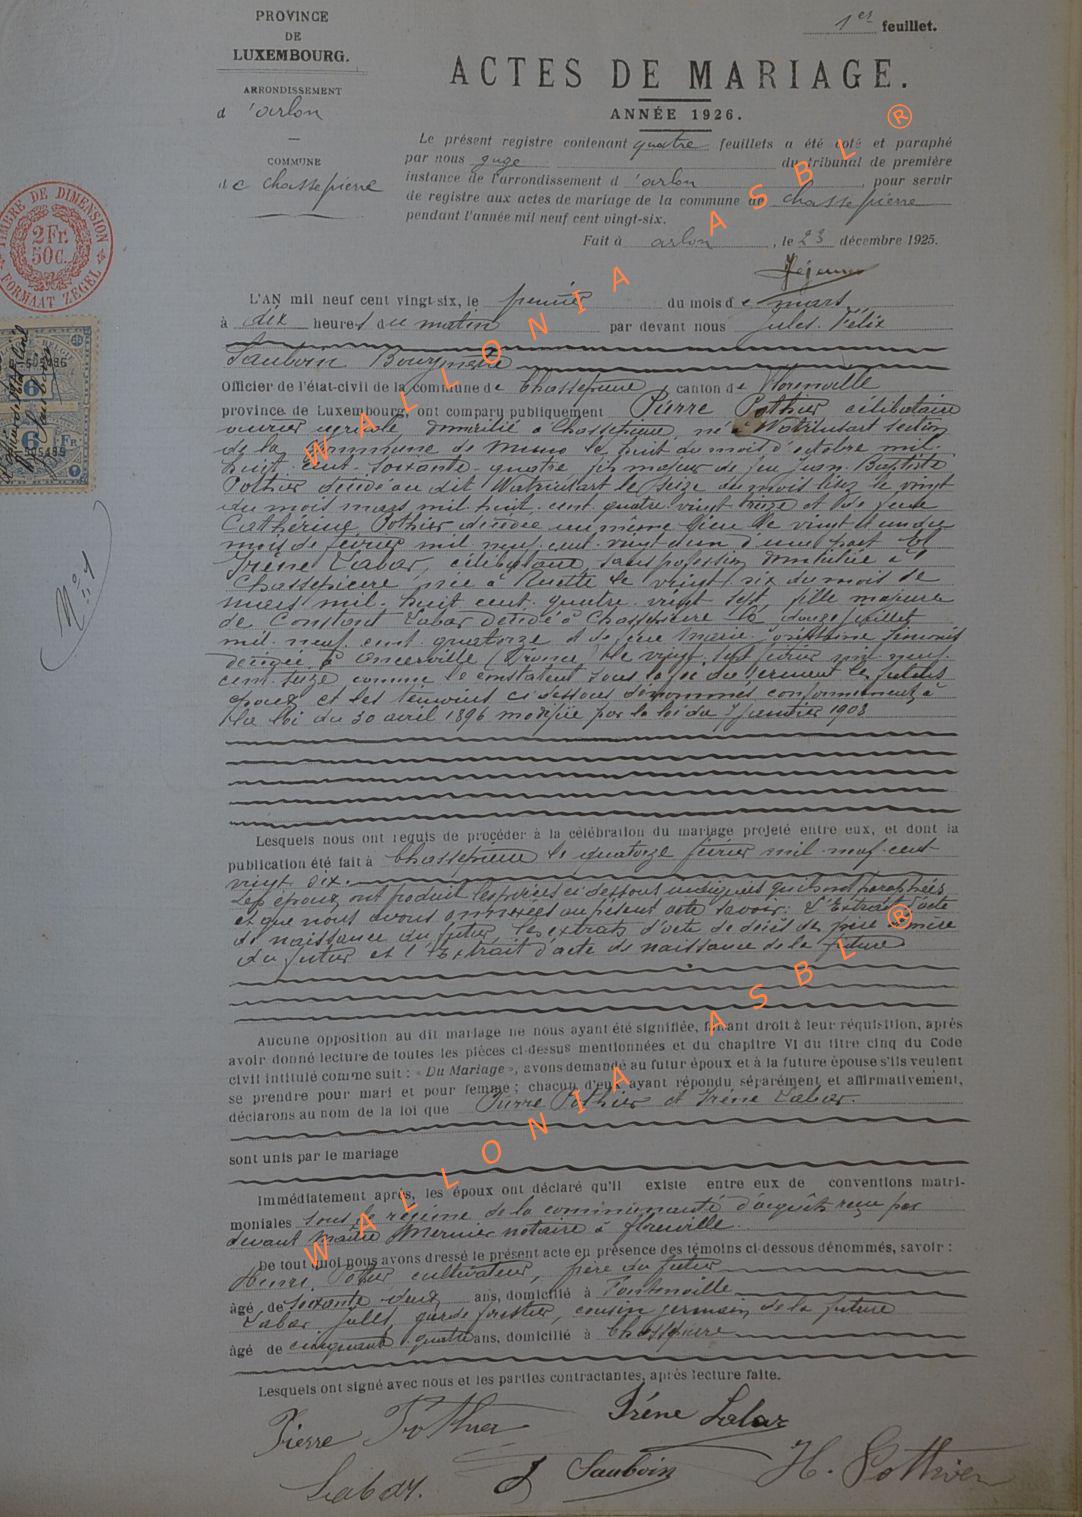 PROVINCE
DE
LUXEMBOURG.
ARRONDISSEMENT
d 'arlon
COMMUNE
de Chassepierre
1er feuillet.
ACTES DE MARIAGE.
ANNÉE 1926.
Le présent registre contenant quatre feuillets a été coté et paraphé
par nous juge du tribunal de première
instance de l'arrondissement d 'arlon, pour servir
de registre aux actes de mariage de la commune de Chassepierre
pendant l'année mil neuf cent vingt-six.
Fait à arlon, le 23 décembre 1925.
TIMBRE DE DIMENSION
2 Fr.
50 C.
FORMAAT ZEGEL
N° 1
L'AN mil neuf cent vingt-six, le premier du mois de mars
à dix heures du matin par devant nous Jules Félix
Sauboin Bourgmestre
Officier de l'état-civil de la commune de Chassepierre, canton de Florenville
province de Luxembourg, ont comparu publiquement Pierre Pothier célibataire
ouvrier agricole domicilié à Chassepierre, né à Watrinsart section
de la commune de Muno le huit du mois d'octobre mil
huit cent soixante quatre fils majeur de feu Jean Baptiste
Pothier décédé au dit Watrinsart le seize du mois lisez le vingt
du mois mars mil huit cent quatre vingt treize et de feue
Catherine Pothier décédée au même lieu le vingt et un du
mois de février mil neuf cent vingt et un d'une part Et
Irène Labar, célibataire, sans profession domiciliée à
Chassepierre née à Ruette le vingt six du mois de
mars mil huit cent quatre vingt sept fille majeure
de Constant Labar décédé à Chassepierre le douze juillet
mil neuf cent quatorze et de feue Marie Simonis
décédée à le vingt sept février mil neuf
cent seize comme le constatent sous la foi du serment les futurs
époux et les témoins ci dessous dénommés conformément à
la loi du 30 avril 1896 modifiée par la loi du 7 janvier 1908
Lesquels nous ont requis de procéder à la célébration du mariage projeté entre eux, et dont la
publication été fait à Chassepierre le quatorze février mil neuf cent
vingt six.
Les époux ont produit les pièces ci dessous indiquées qu'ils ont paraphées
et que nous avons annexées au présent acte savoir: L'Extrait d'acte
de naissance du futur les extraits d'acte de décès des père et mère
du futur et l'Extrait d'acte de naissance de la future
Aucune opposition au dit mariage ne nous ayant été signifiée, faisant droit à leur réquisition, après
avoir donné lecture de toutes les pièces ci-dessus mentionnées et du chapitre VI du titre cinq du Code
civil intitulé comme suit : « Du Mariage », avons demandé au futur époux et à la future épouse s'ils veulent
se prendre pour mari et pour femme ; chacun d'eux ayant répondu séparément et affirmativement,
déclarons au nom de la loi que Pierre Pothier et Irène Labar.
sont unis par le mariage
Immédiatement après, les époux ont déclaré qu'il existe entre eux de conventions matri-
moniales sous le régime de la communauté d'acquêts reçu par
devant Maître Mernier notaire à Florenville.
De tout quoi nous avons dressé le présent acte en présence des témoins ci-dessous dénommés, savoir :
Henri Pothier cultivateur, frère du futur
âgé de soixante deux ans, domicilié à Fontenoille
Labar Jules, garde forestier, cousin germain de la future
âgé de cinquante quatre ans, domicilié à Chassepierre
Lesquels ont signé avec nous et les parties contractantes, après lecture faite.
Pierre Pothier
Irène Labar
Labar J.
J Sauboin
H. Pothier
WALLONIA ASBL ®
WALLONIA ASBL ®